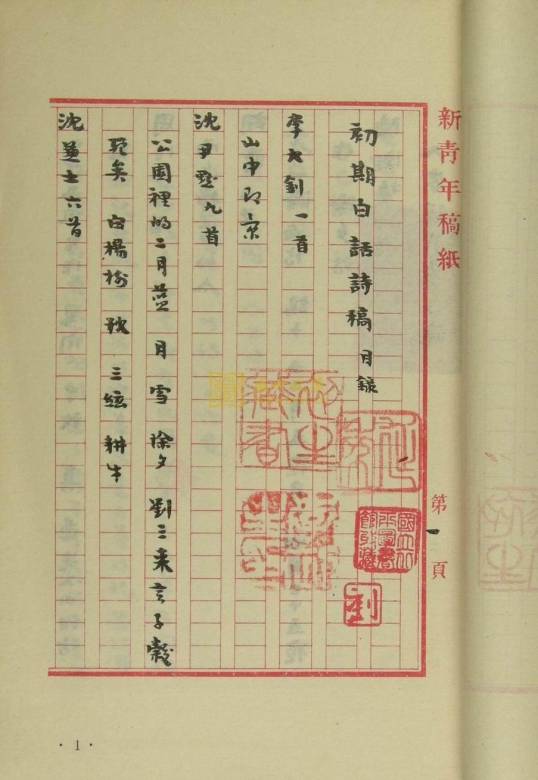 新青年稿紙
第一頁
初期白話詩稿 目錄
李大釗一首
山中即景
沈尹默九首
公園裡的二月藍 月 雪 除夕 劉三来言子穀
死矣 白楊樹 秋 三絃 耕牛
沈兼士六首
劉
· 1 ·